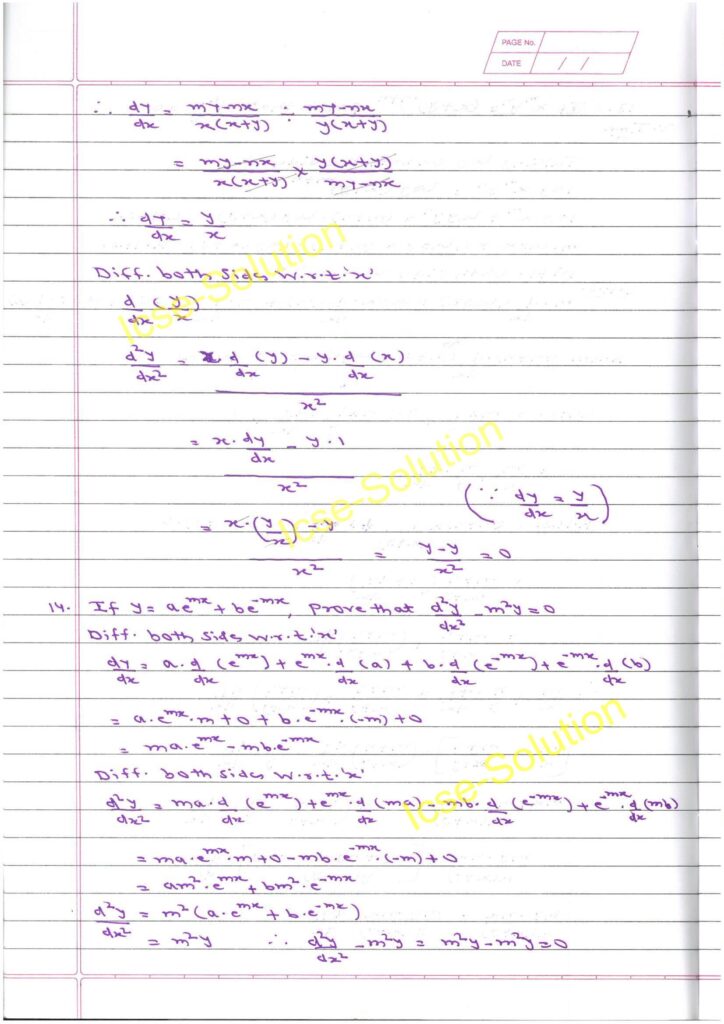 PAGE No.
DATE / /
∴ dy/dx = my-nx/x(x+y) ÷ my-nx/y(x+y)
= my-nx/x(x+y) × y(x+y)/my-nx
∴ dy/dx = y/x
Diff. both sides w.r.t.'x'
d/dx (y/x)
d²y/dx² = x d/dx (y) - y. d/dx (x) / x²
= x. dy/dx - y.1 / x²
(∵ dy/dx = y/x)
= x.(y/x) - y / x² = y-y/x² = 0
14. If y = ae^mx + be^-mx, prove that d²y/dx² - m²y = 0
Diff. both sides w.r.t.'x'
dy/dx = a. d/dx (e^mx) + e^mx. d/dx (a) + b. d/dx (e^-mx) + e^-mx. d/dx (b)
= a.e^mx.m + 0 + b.e^-mx.(-m) + 0
= ma.e^mx - mb.e^-mx
Diff. both sides w.r.t.'x'
d²y/dx² = ma. d/dx (e^mx) + e^mx. d/dx (ma) - mb. d/dx (e^-mx) + e^-mx. d/dx (mb)
= ma.e^mx.m + 0 - mb.e^-mx.(-m) + 0
= am².e^mx + bm².e^-mx
d²y/dx² = m²(a.e^mx + b.e^-mx)
= m²y ∴ d²y/dx² - m²y = m²y - m²y = 0
Icse-Solution
Icse-Solution
Icse-Solution